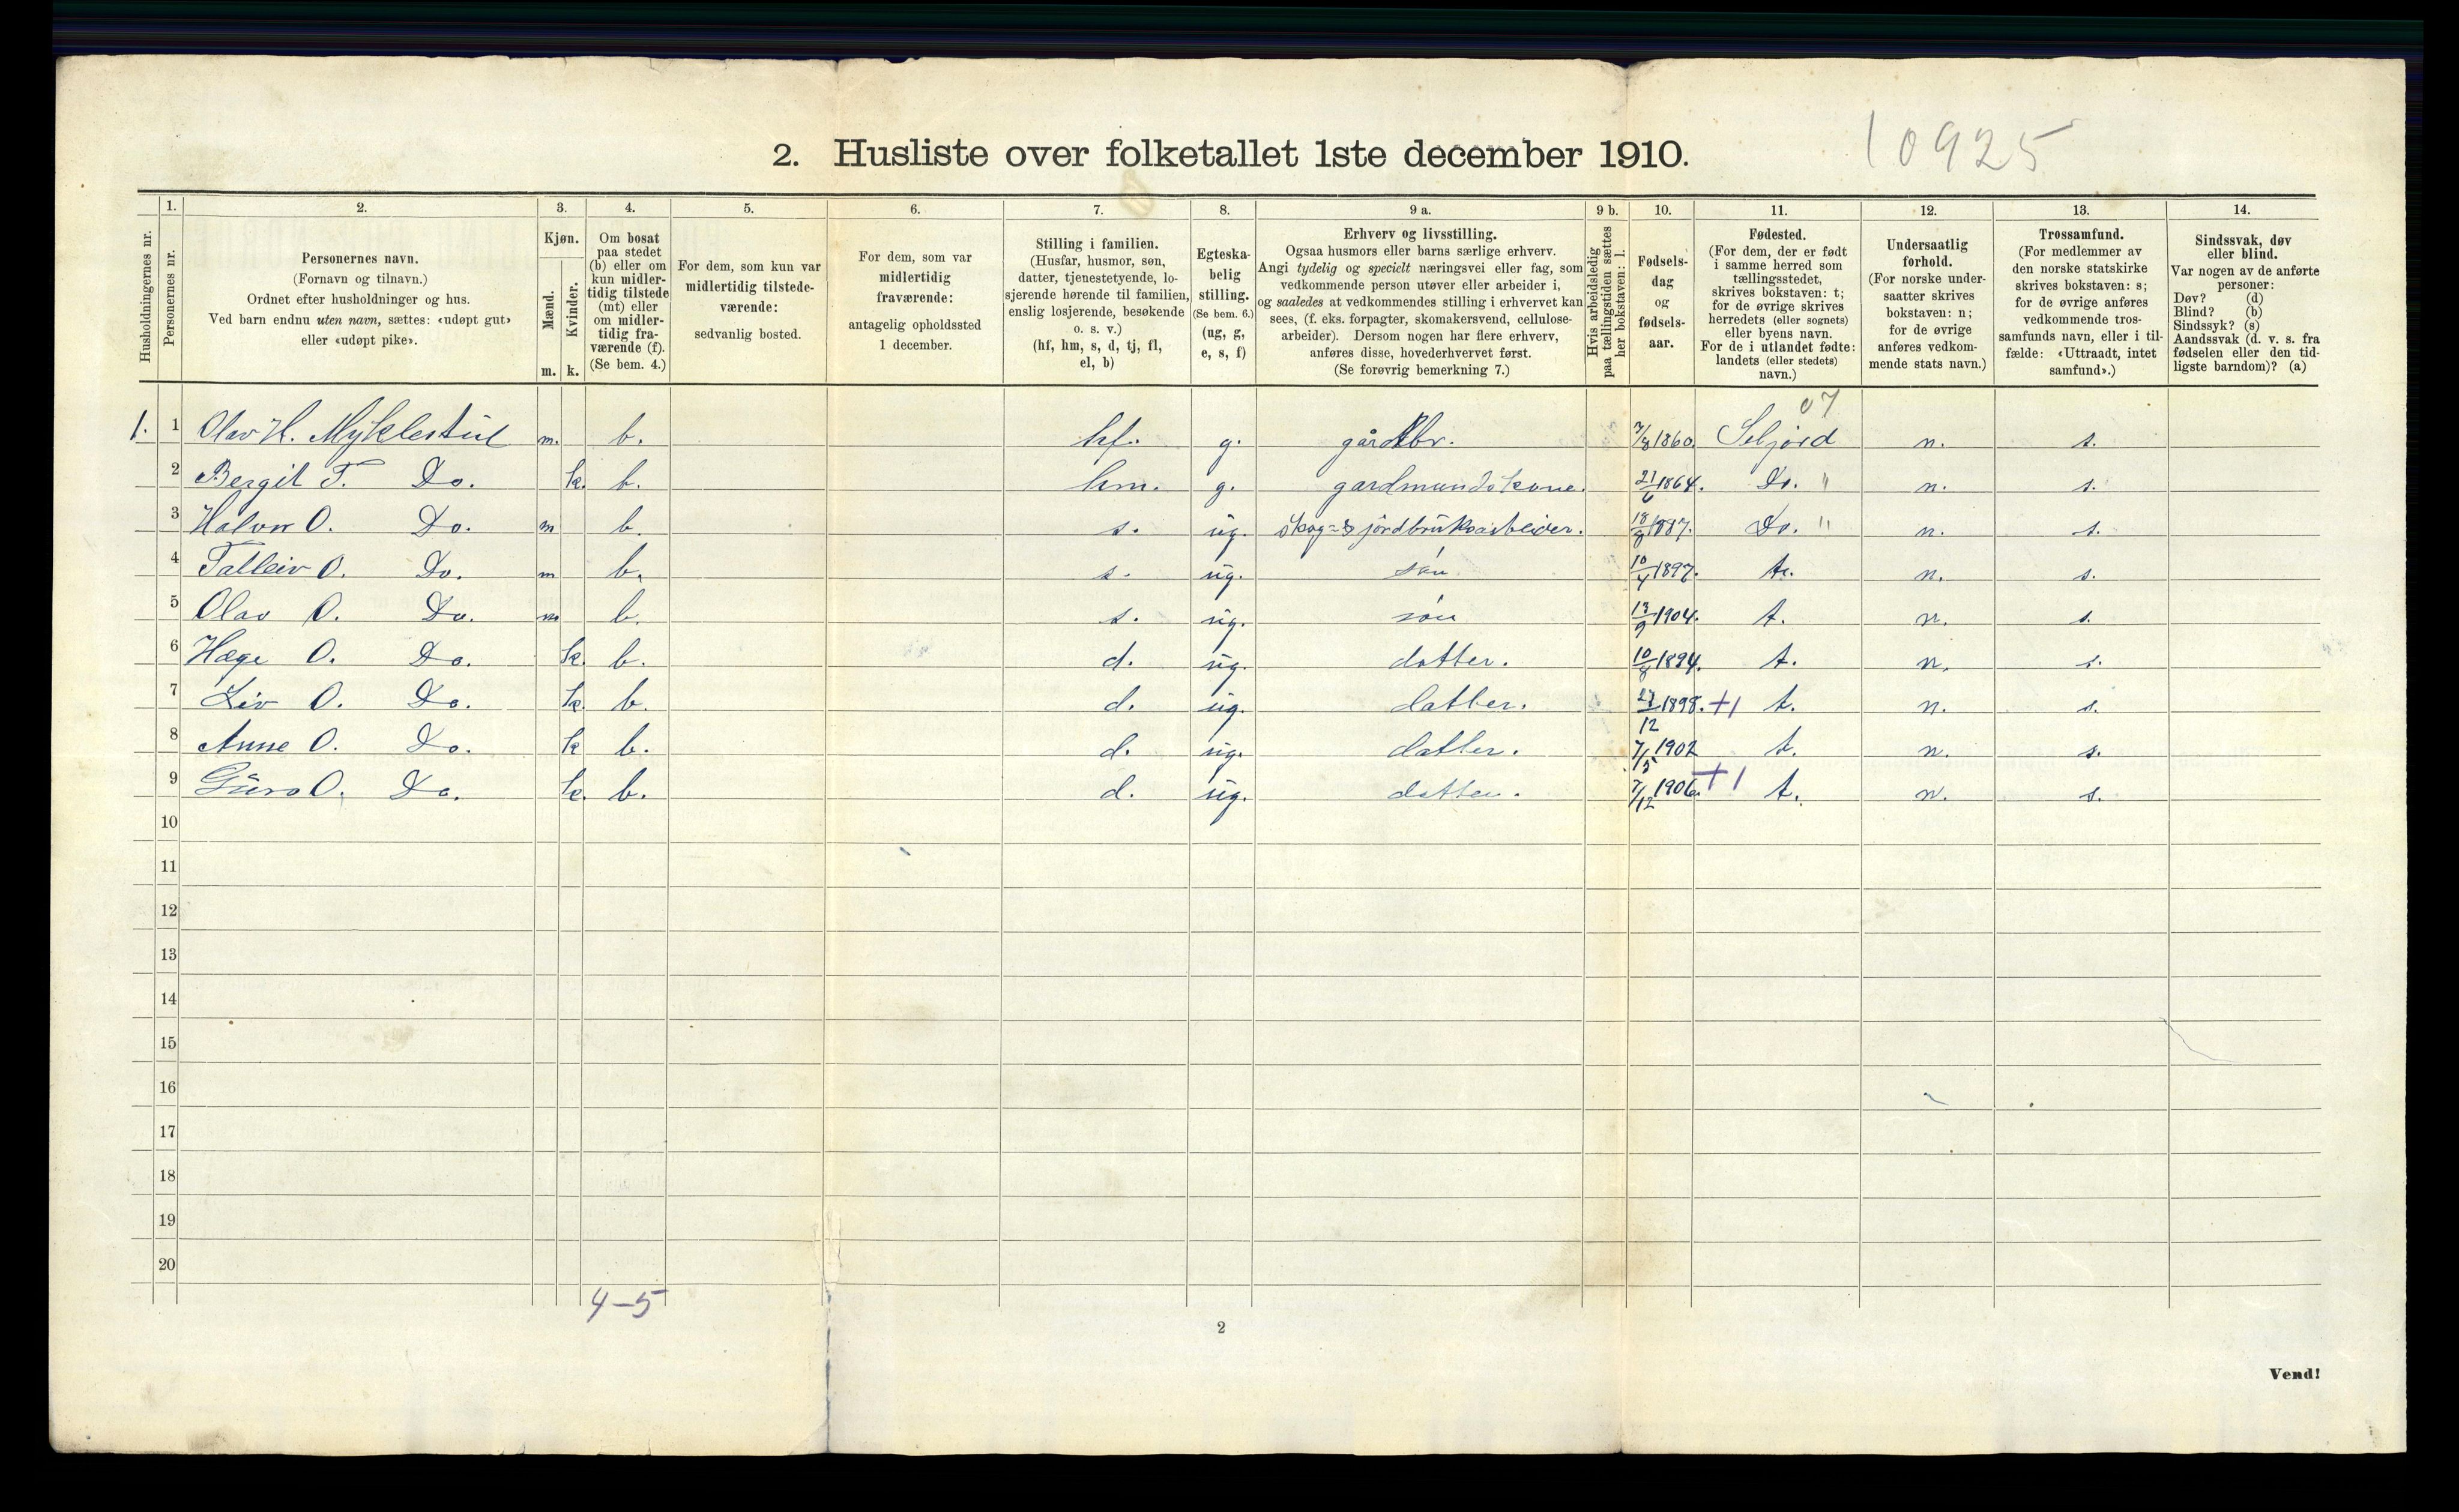 2. Husliste over folketallet 1ste december 1910.
10925
Husholdningernes nr.
1.
Personernes nr.
2.
Personernes navn.
(Fornavn og tilnavn.)
Ordnet efter husholdninger og hus.
Ved barn endnu uten navn, sættes: «udøpt gut»
eller «udøpt pike».
3.
Kjøn.
Mænd.
Kvinder.
m. k.
4.
Om bosat
paa stedet
(b) eller om
kun midler-
tidig tilstede
(mt) eller
om midler-
tidig fra-
værende (f).
(Se bem. 4.)
5.
For dem, som kun var
midlertidig tilstede-
værende:
sedvanlig bosted.
6.
For dem, som var
midlertidig
fraværende:
antagelig opholdssted
1 december.
7.
Stilling i familien.
(Husfar, husmor, søn,
datter, tjenestetyende, lo-
sjerende hørende til familien,
enslig losjerende, besøkende
o. s. v.)
(hf, hm, s, d, tj, fl,
el, b)
8.
Egteska-
belig
stilling.
(Se bem. 6.)
(ug, g,
e, s, f)
9 a.
Erhverv og livsstilling.
Ogsaa husmors eller barns særlige erhverv.
Angi tydelig og specielt næringsvei eller fag, som
vedkommende person utøver eller arbeider i,
og saaledes at vedkommendes stilling i erhvervet kan
sees, (f. eks. forpagter, skomakersvend, cellulose-
arbeider). Dersom nogen har flere erhverv,
anføres disse, hovederhvervet først.
(Se forøvrig bemerkning 7.)
9 b.
Hvis arbeidsledig
paa tællingstiden sættes
her bokstaven: l.
10.
Fødsels-
dag
og
fødsels-
aar.
11.
Fødested.
(For dem, der er født
i samme herred som
tællingsstedet,
skrives bokstaven: t;
for de øvrige skrives
herredets (eller sognets)
eller byens navn.
For de i utlandet fødte:
landets (eller stedets)
navn.)
12.
Undersaatlig
forhold.
(For norske under-
saatter skrives
bokstaven: n;
for de øvrige
anføres vedkom-
mende stats navn.)
13.
Trossamfund.
(For medlemmer av
den norske statskirke
skrives bokstaven: s;
for de øvrige anføres
vedkommende tros-
samfunds navn, eller i til-
fælde: «Uttraadt, intet
samfund».)
14.
Sindssvak, døv
eller blind.
Var nogen av de anførte
personer:
Døv? (d)
Blind? (b)
Sindssyk? (s)
Aandssvak (d. v. s. fra
fødselen eller den tid-
ligste barndom)? (a)
07
1. 1 Olav H. Myklestul m. b. hf. g. gårdbr. 7/8 1860. Seljord n. s.
2 Bergit T. Do. k. b. hm. g. gardmundskone. 21/6 1864. Do. " n. s.
3 Halvor O. Do. m b. s. ug. skog= & jordbruksarbeider. 18/8 1887. Do. " n. s.
4 Talleiv O. Do. m b. s. ug. søn 10/4 1897. t. n. s.
5 Olav O. Do. m b. s. ug. søn 13/9 1904. t. n. s.
6 Hæge O. Do. k. b. d. ug. datter. 10/8 1894. t. n. s.
7 Liv O. Do. k. b. d. ug. datter. 27/12 1898. +1 t. n. s.
8 Anne O. Do. k b. d. ug. datter. 7/5 1902 t. n. s.
9 Guro O. Do. k. b. d. ug. datter. 7/12 1906. +1 t. n. s.
10
11
12
13
14
15
16
17
18
19
20
4-5
2
Vend!